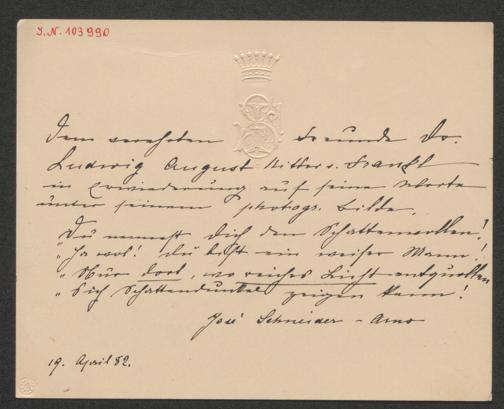 I.N. 103990
Dem verehrten Freunde Dr.
Ludwig August Ritter v. Frankl
in Erwiederung auf seine Worte
unter seinem photogr. Bilde.
"Du nennst Dich den Schattenvollen!
"Ja wol! Du bist ein weiser Mann!
"Nur dort, wo reiches Licht entquollen
"Sich Schattendunkel zeigen kann!
José Schneider - Arno
19. April 82.